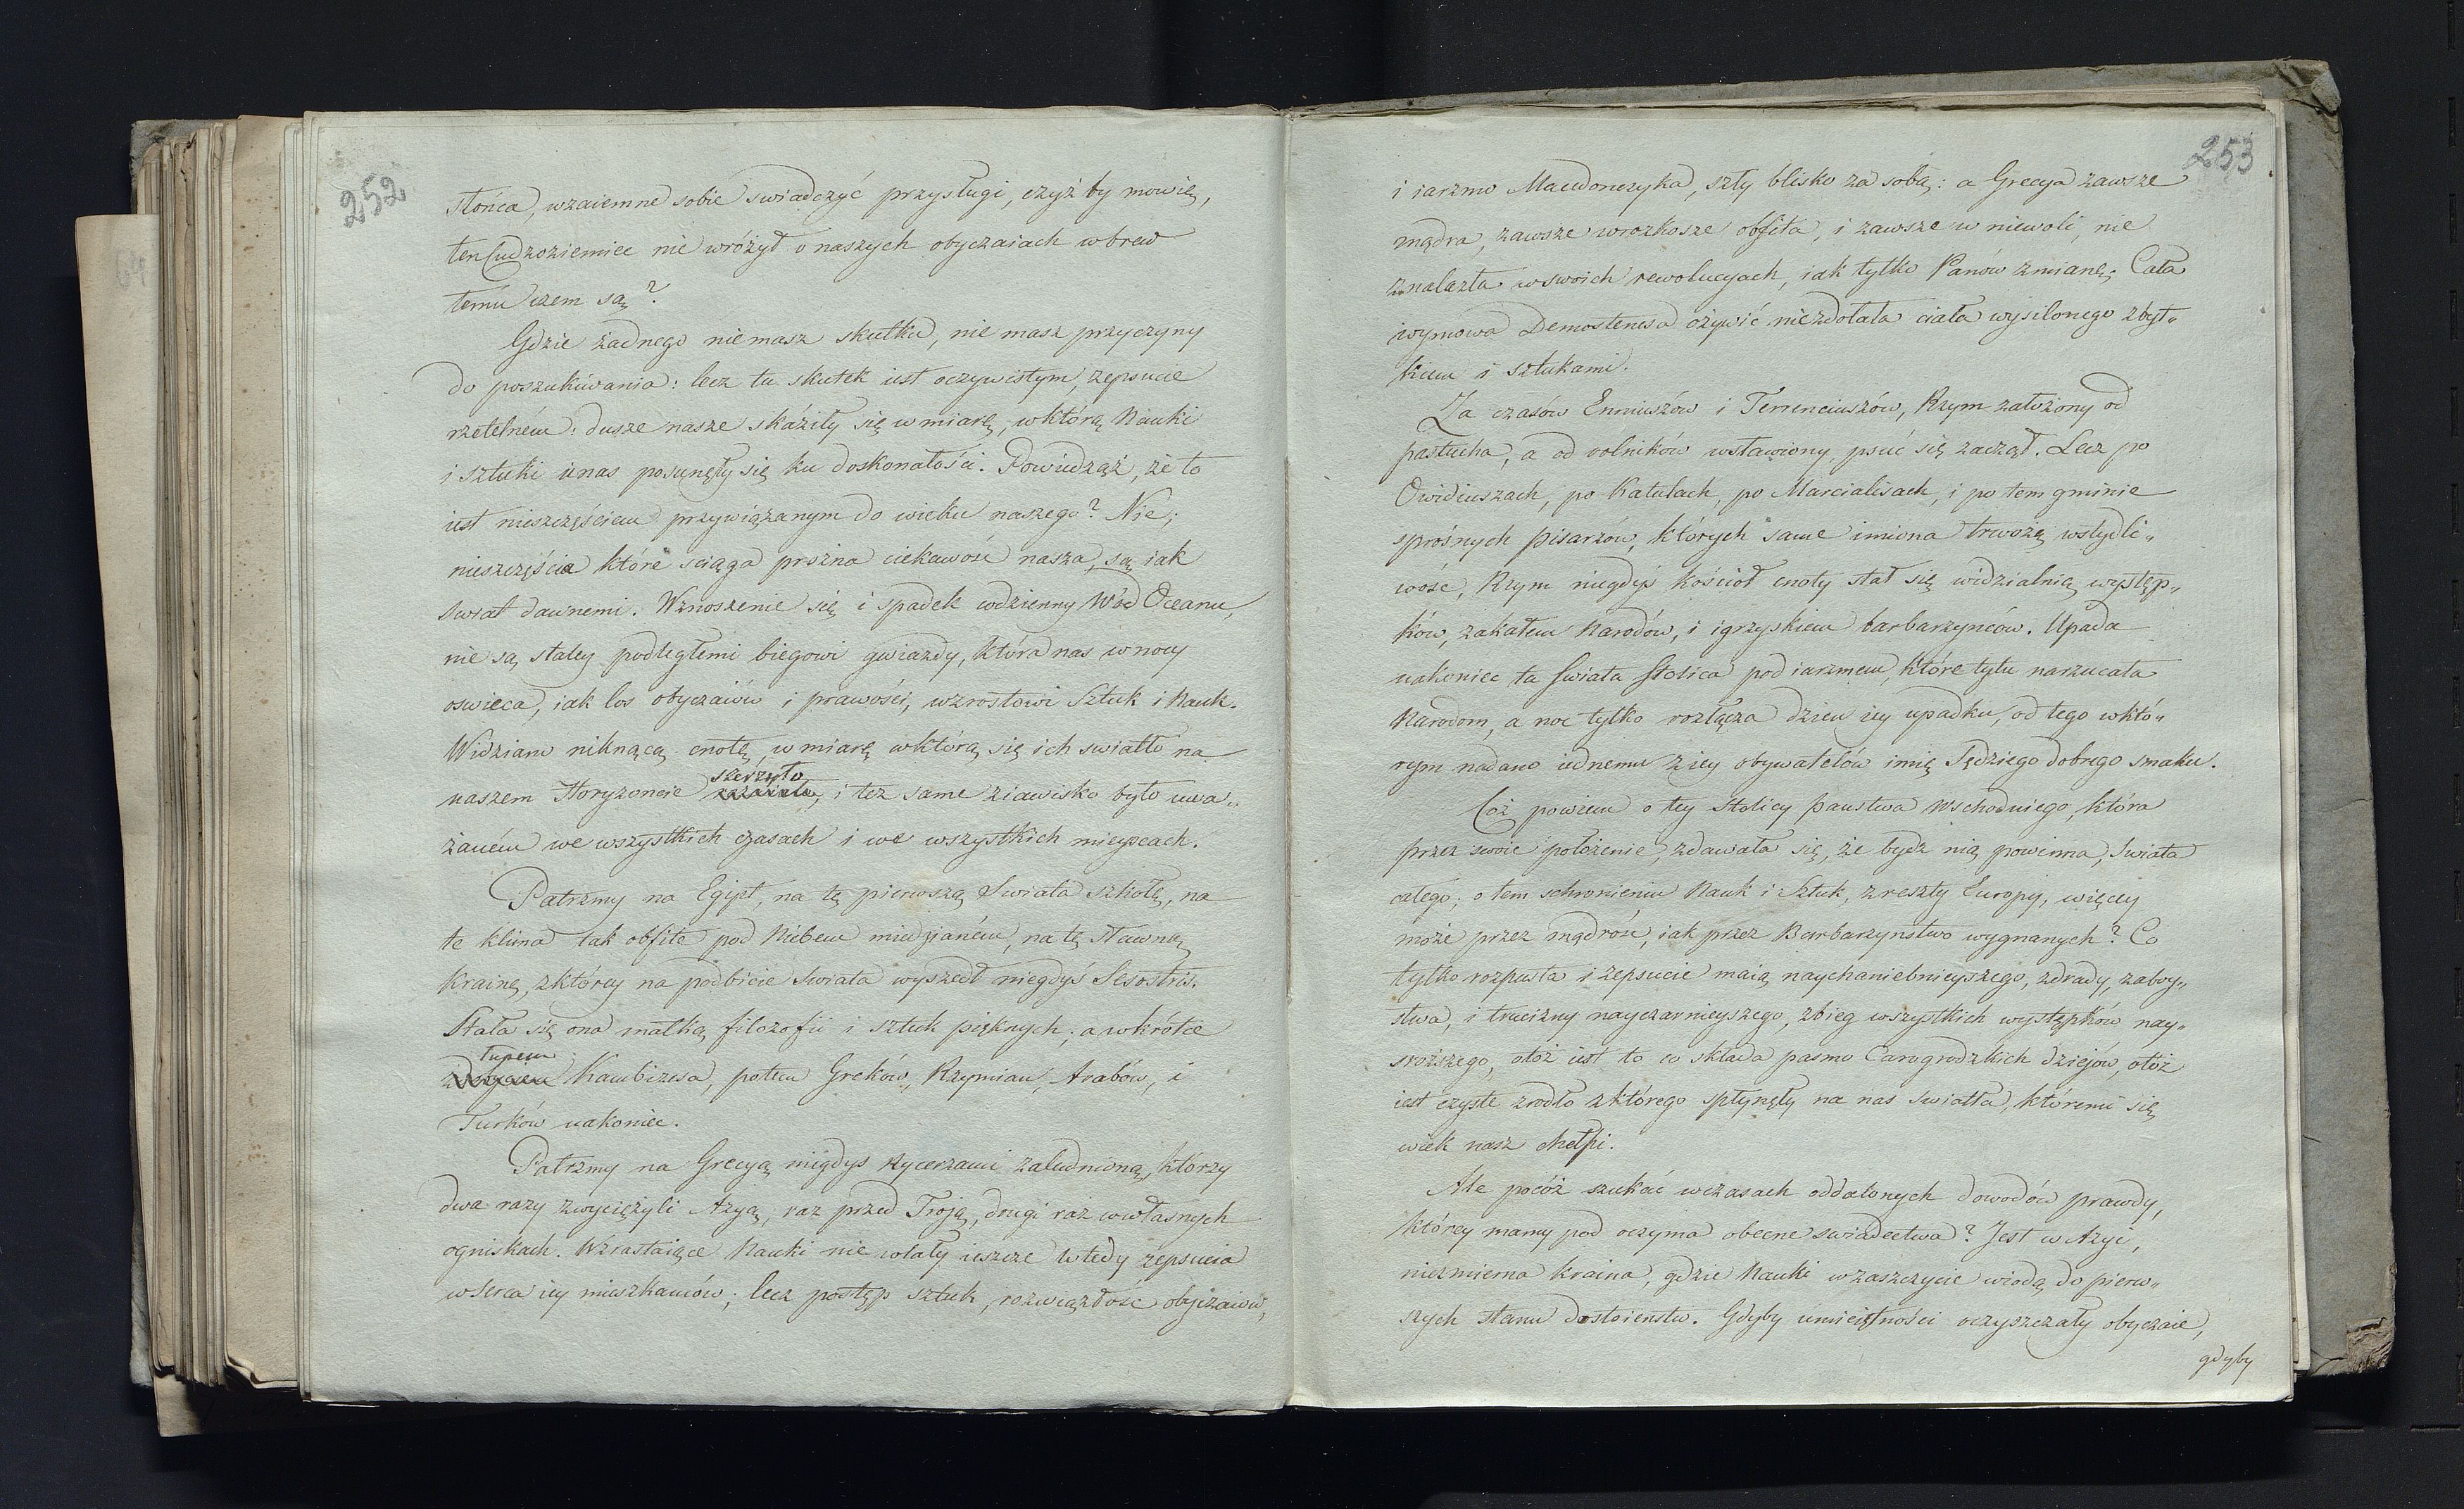 252
słońca, wzaiemne sobie swiadczyć przysługi, czyż by mowię,
ten Cudzoziemiec nie wróżył o naszych obyczaiach wbrew
temu czem są?
Gdzie żadnego niemasz skutku, nie masz przyczyny
do poszukiwania: lecz tu skutek iest oczywistym, zepsucie
rzetelném: dusze nasze skáziły się w miarę, wktórą Nauki
i sztuki unas posunęły się ku doskonałości. Powiedząż, że to
iest nieszczęściem przywiązanym do wieku naszego? Nie;
nieszczęścia które sciąga prożna ciekawość nasza, są iak
swiat dawnemi. Wznoszenie się i spadek codzienny Wód Oceanu,
nie są stałey podległemi biegowi gwiazdy, która nas w nocy
oswieca, iak los obyczaiów i prawości, wzrostowi Sztuk i Nauk.
Widziano niknącą cnotę, w miarę wktórą się ich swiatło na
szerzyło
naszem Horyzoncie, i tez same ziawisko było uwa„
żaném we wszystkich czasach i we wszystkich mieyscach.
Patrzmy na Egipt, na tę pierwszą Swiata szkołę, na
te klima tak obfite pod Niebem miedzianém, na tę sławną
krainę, zktórey na podbicie swiata wyszedł niegdyś Sesostris.
Stała się ona matką filozofii i sztuk pięknych; a wkrótce
łupem
zdobyciem Kambizesa, potem Greków, Rzymian, Arabów, i
Turków nakoniec.
Patrzmy na Grecyą niegdys rycerzami zaludnioną, którzy
dwa razy zwyciężyli Azyą, raz przed Troją, drugi raz wwłasnych
ogniskach. Wzrastaiące Nauki nie wlały ieszcze wtedy zepsucia
w serca iey mieszkańców; lecz postęp sztuk, rozwiązłość obyczaiów,
253
i iarzmo Macedonczyka, szły blisko za sobą: a Grecya zawsze
mądra, zawsze wrozkosze obfita, i zawsze w niewoli, nie
znalazła wswoich rewolucyach, iak tylko Panów zmianę; Cała
wymowa Demostenesa ożywić niezdołała ciała wysilonego zbyt„
kiem i sztukami.
Za czasów Enniuszów i Terrenciuszów, Rzym założony od
pastucha, a od rolników wsławiony, psuć się zaczął. Lecz po
Owidiuszach, po Katulach, po Marcialisach, i po tem gminie
sprośnych pisarzów, których same imiona trwożą wstydli„
wość, Rzym niegdyś kościoł cnoty stał się widzialnią występ„
ków, zakałem Narodów, i igrzyskiem barbarzynców. Upada
nakoniec ta Swiata Stolica pod iarzmem, które tylu narzucała
Narodom, a noc tylko rozłącza dzień iey upadku, od tego wktó„
rym nadano iednemu z iey obywatelów imię Sędziego dobrego smaku.
Cóż powiem o tey stolicy państwa Wschodniego, która
przez swoie położenie, zdawała się, że bydz nią powinna, swiata
całego; o tem schronieniu Nauk i Sztuk, z reszty Europy, więcey
może przez mądrość, iak przez Barbarzynstwo wygnanych? Co
tylko rozpusta i zepsucie maią naychaniebnieyszego, zdrady, zaboy„
stwa, i trucizny nayczarnieyszego, zbieg wszystkich występków nay„
sroższego, otóż iest to co składa pasmo Carogrodzkich dziejów, otóż
iest czyste źrodło zktórego spłynęły na nas swiatła, któremi się
wiek nasz chełpi.
Ale pocóż szukać wczasach oddalonych dowodów prawdy,
którey mamy pod oczyma obecne swiadectwa? Jest w Azyi,
niezmierna kraina, gdzie Nauki wzaszczycie wiodą do pierw„
szych stanu dostoienstw. Gdyby umieiętności oczyszczały obyczaie,
gdyby